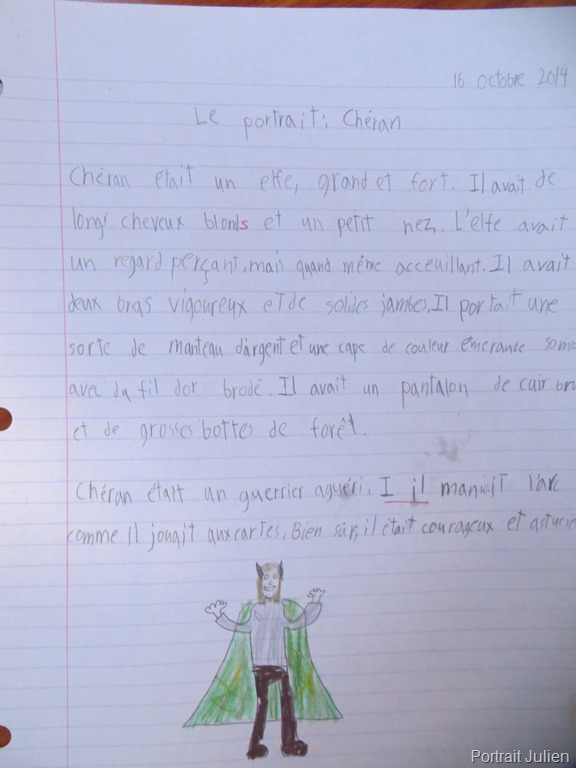 16 octobre 2014
Le portrait: Chéran
Chéran était un elfe, grand et fort. Il avait de
longs cheveux blonds et un petit nez. L'elfe avait
un regard perçant, mais quand même acceuillant. Il avait
deux bras vigoureux et de solides jambes. Il portait une
sorte de manteau d'argent et une cape de couleur émeraude
avec du fil d'or brodé. Il avait un pantalon de cuir
et de grosses bottes de forêt.
Chéran était un guerrier aguéri. I il maniait l'arc
comme il jouait aux cartes, Bien sûr, il était courageux et
Portrait Julien